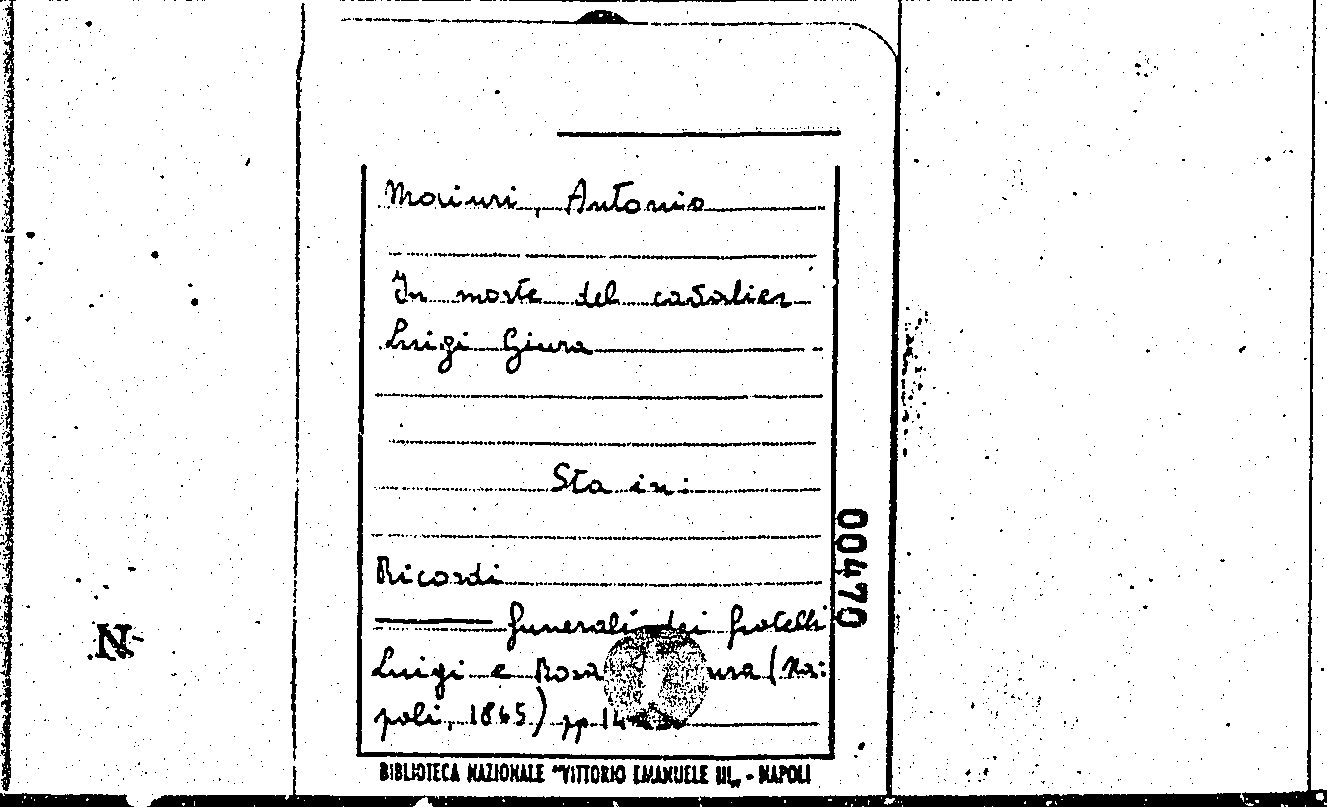 Maiuri, Antonio
In morte del cavalier
Luigi Giura
Sta in:
Ricordi
funerali dei fratelli
Luigi e Rosa (Na:
poli, 1865) pp 14
BIBLIOTECA NAZIONALE "VITTORIO EMANUELE III" - NAPOLI
00470
N